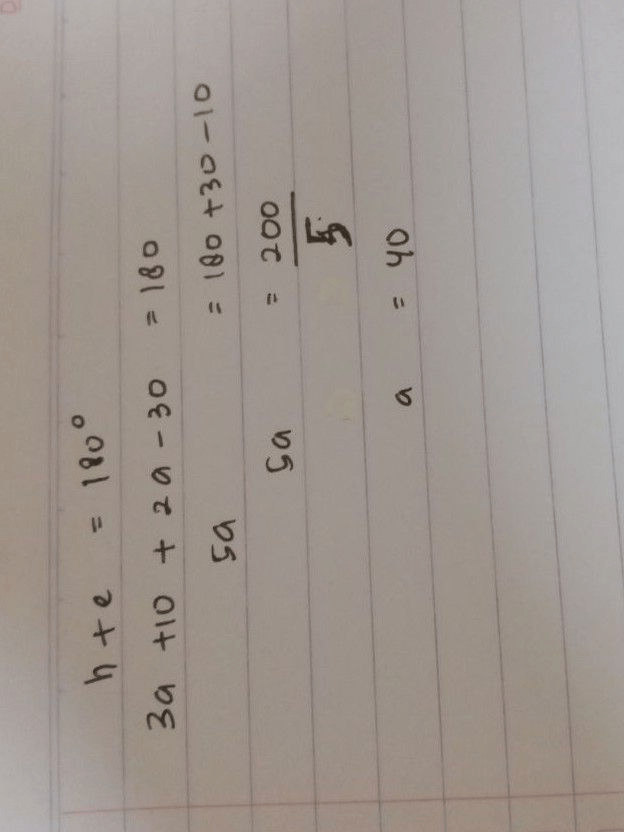 h + e = 180°
3a + 10 + 2a - 30 = 180
5a = 180 + 30 - 10
5a = 200
5
a = 40